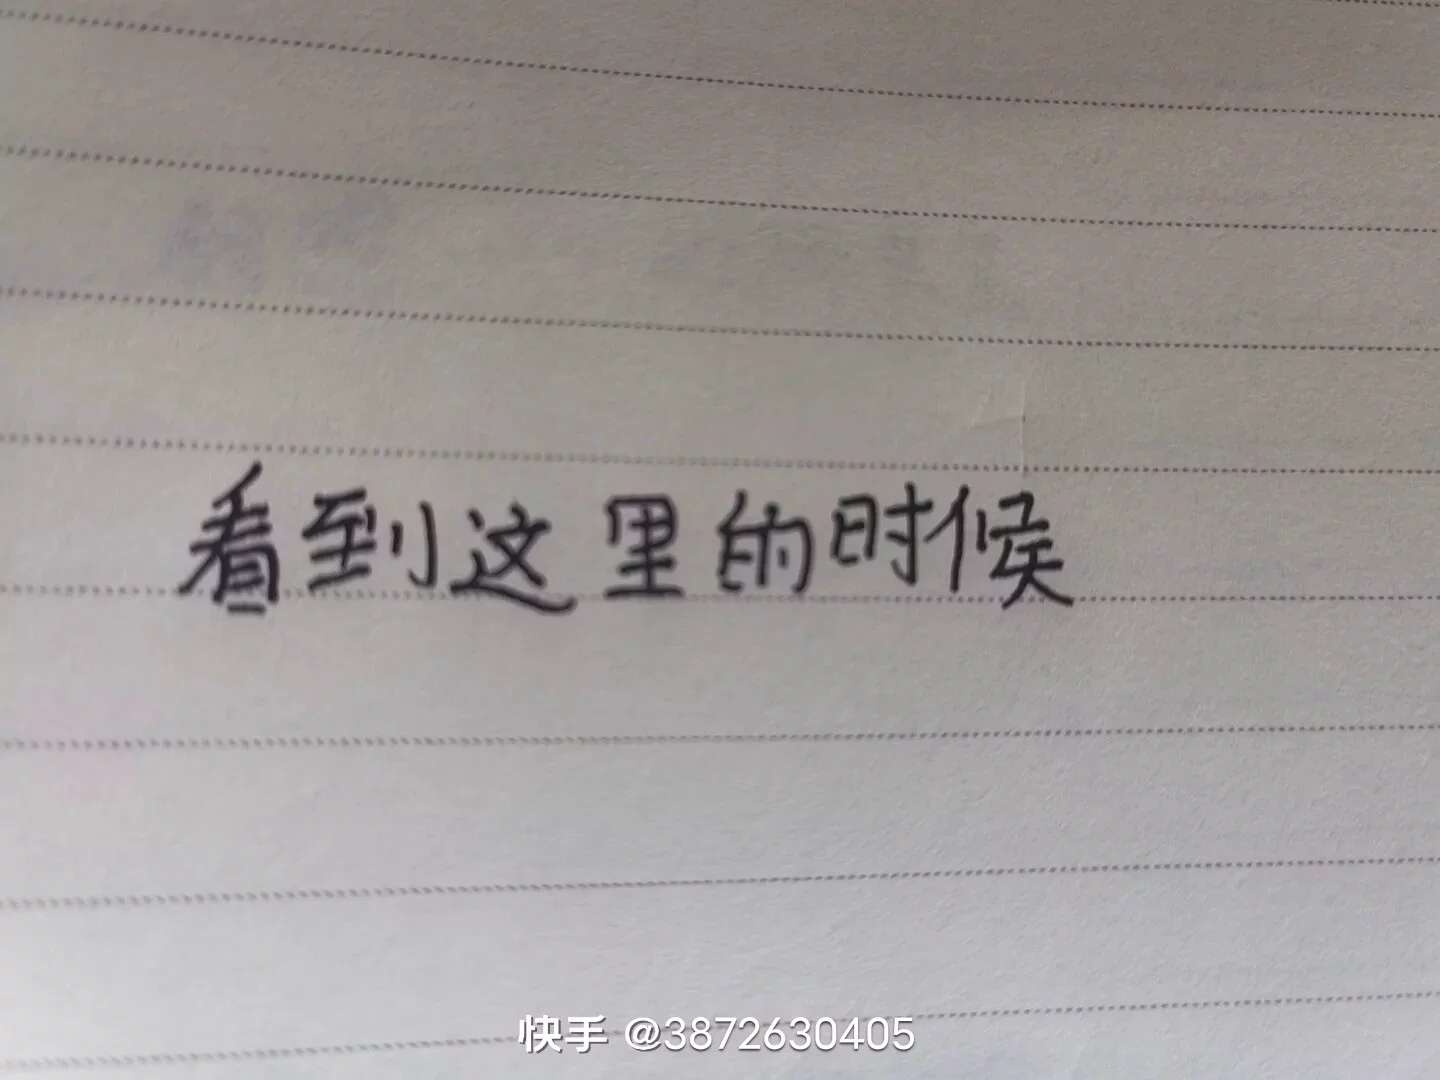 看到这里的时候
快手 @3872630405